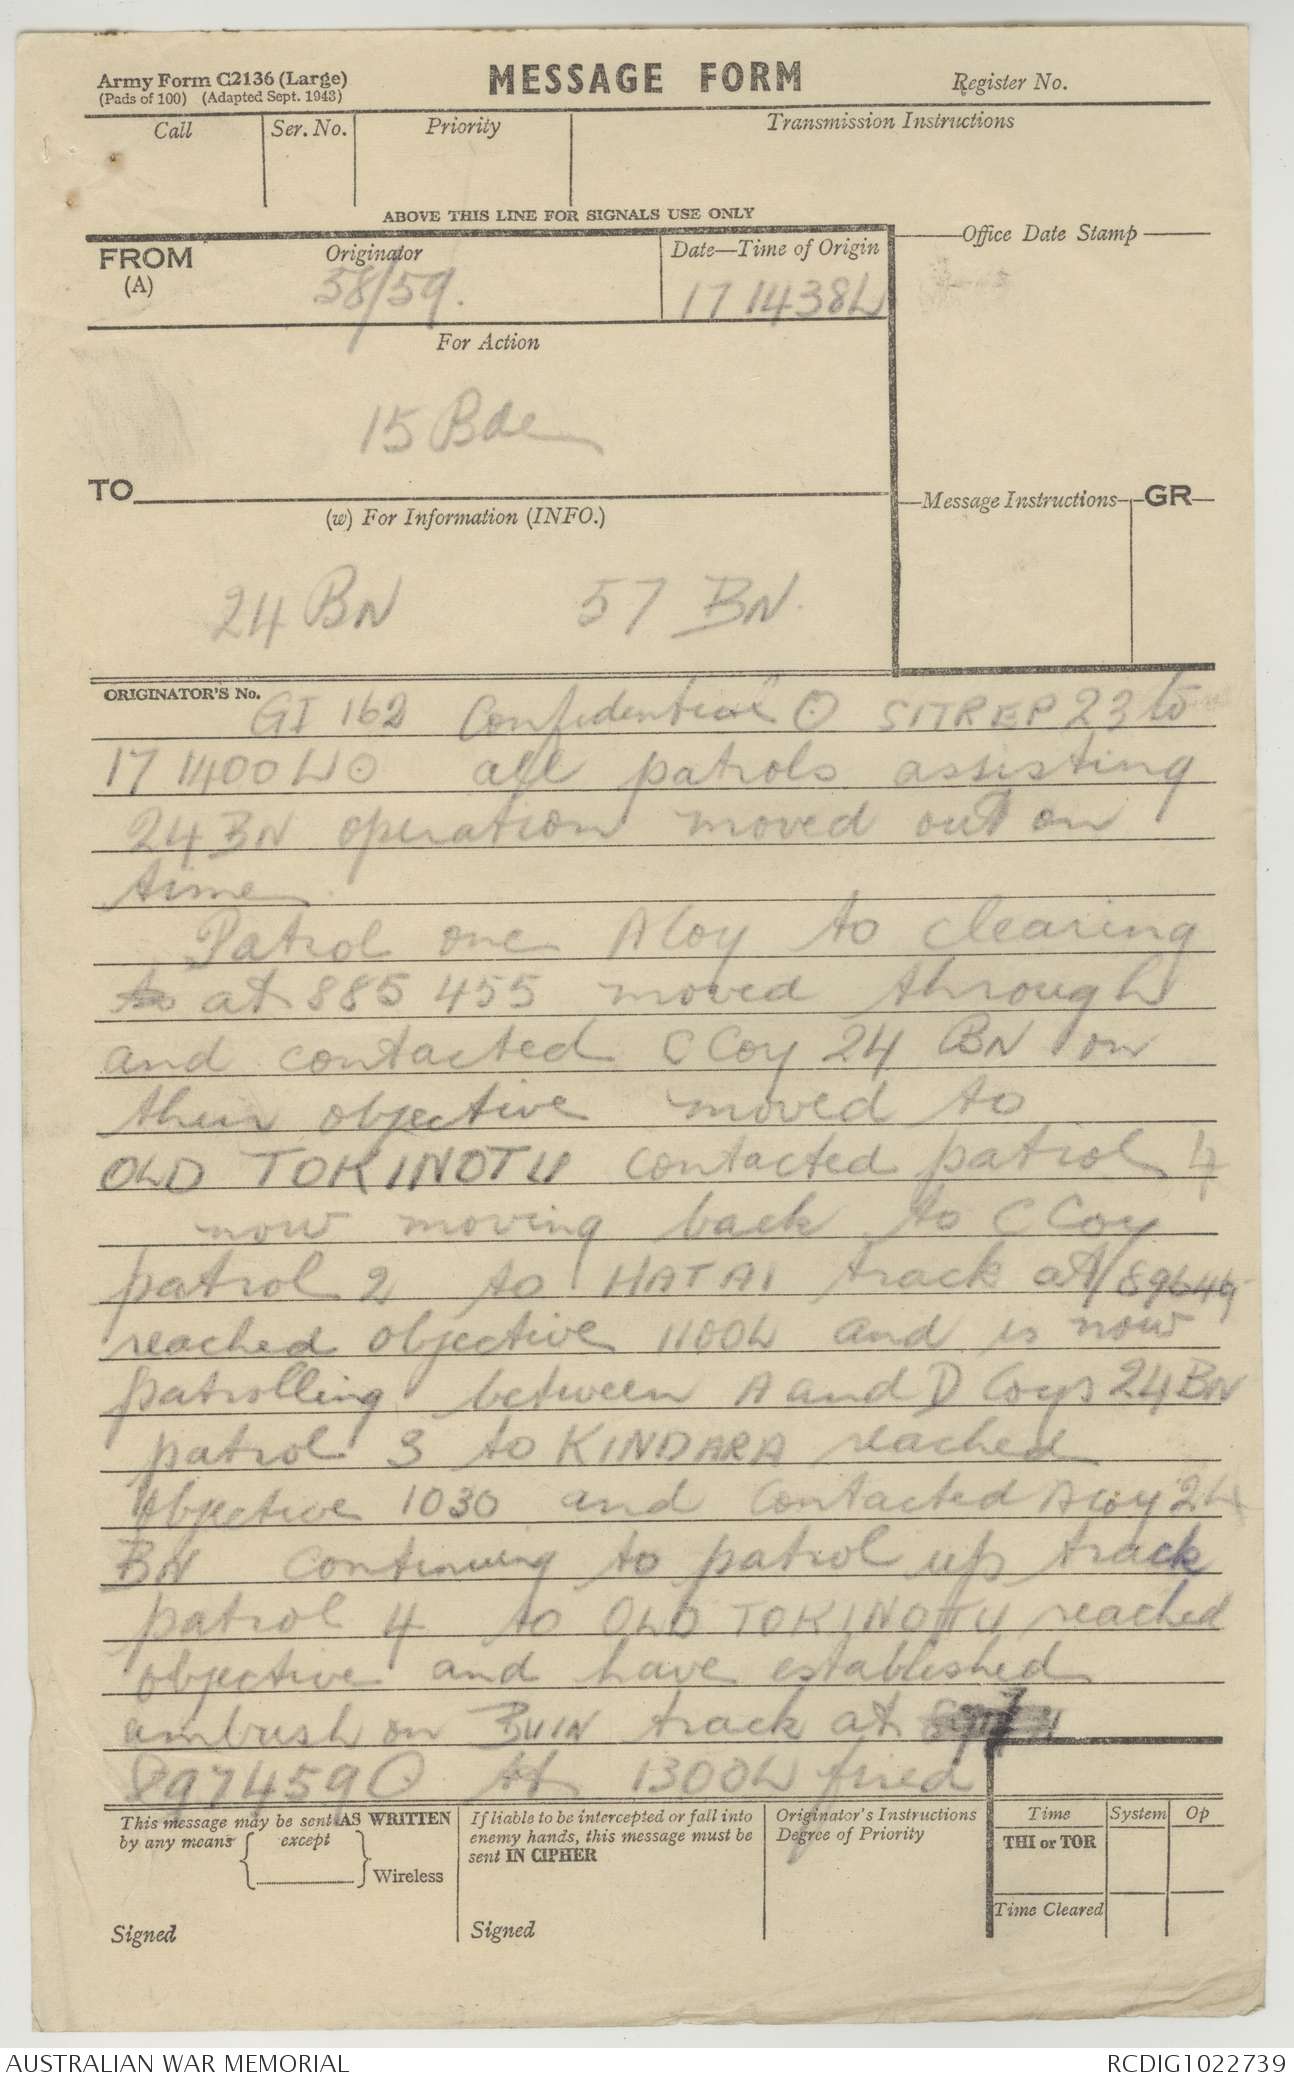 Army Form C2136 (Large)
(Pads of 100) (Adapted Sept. 1943)
MESSAGE FORM
Register No.
Call
Ser. No.
Priority
Transmission Instructions
ABOVE THIS LINE FOR SIGNALS USE ONLY
FROM
(A)
Originator
58/59.
Date—Time of Origin
17 1438L
Office Date Stamp
For Action
15 Bde
TO
(w) For Information (INFO.)
24 BN 57 BN.
Message Instructions
GR
ORIGINATOR'S No.
GI 162 Confidential ⊙ SITREP 23 to
17 1400L ⊙ all patrols assisting
24 BN operation moved out on
time.
Patrol one A Coy to clearing
to at 885 455 moved through
and contacted C Coy 24 BN on
their objective moved to
OLD TOKINOTU contacted patrol 4
now moving back to C Coy
patrol 2 to HATAI track at 89649
reached objective 1100L and is now
patrolling between A and D Coys 24 BN
patrol 3 to KINDARA reached
objective 1030 and contacted A Coy 24
BN continuing to patrol up track
patrol 4 to OLD TOKINOTU reached
objective and have established
ambush on BUIN track at
897459 ⊙ At 1300L fired
This message may be sent AS WRITTEN
by any means except
Wireless
Signed
If liable to be intercepted or fall into
enemy hands, this message must be
sent IN CIPHER
Signed
Originator's Instructions
Degree of Priority
Time
System
Op
THI or TOR
Time Cleared
AUSTRALIAN WAR MEMORIAL
RCDIG1022739